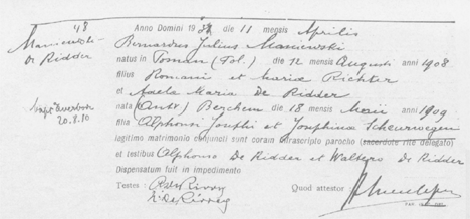 48
Anno Domini 19 die 11 mensis Aprilis
de Ridder
Bernardus Julius Maniewski
natus in Poznan (Pol.) die 12 mensis Augusti anno 1908
filius Romani et Mariæ Richter
et Adela Maria De Ridder
nata (Antw) Berchem die 18 mensis Maii anno 1909
20.8.80
filia Alphonsi Josephi et Josephina Scheurwegen
legitimo matrimonio conjuncti sunt coram infrascripto parocho (sacerdote rite delegato)
et testibus Alphonso De Ridder et Walters De Ridder
Dispensatum fuit in impedimento
Testes :
Quod attestor